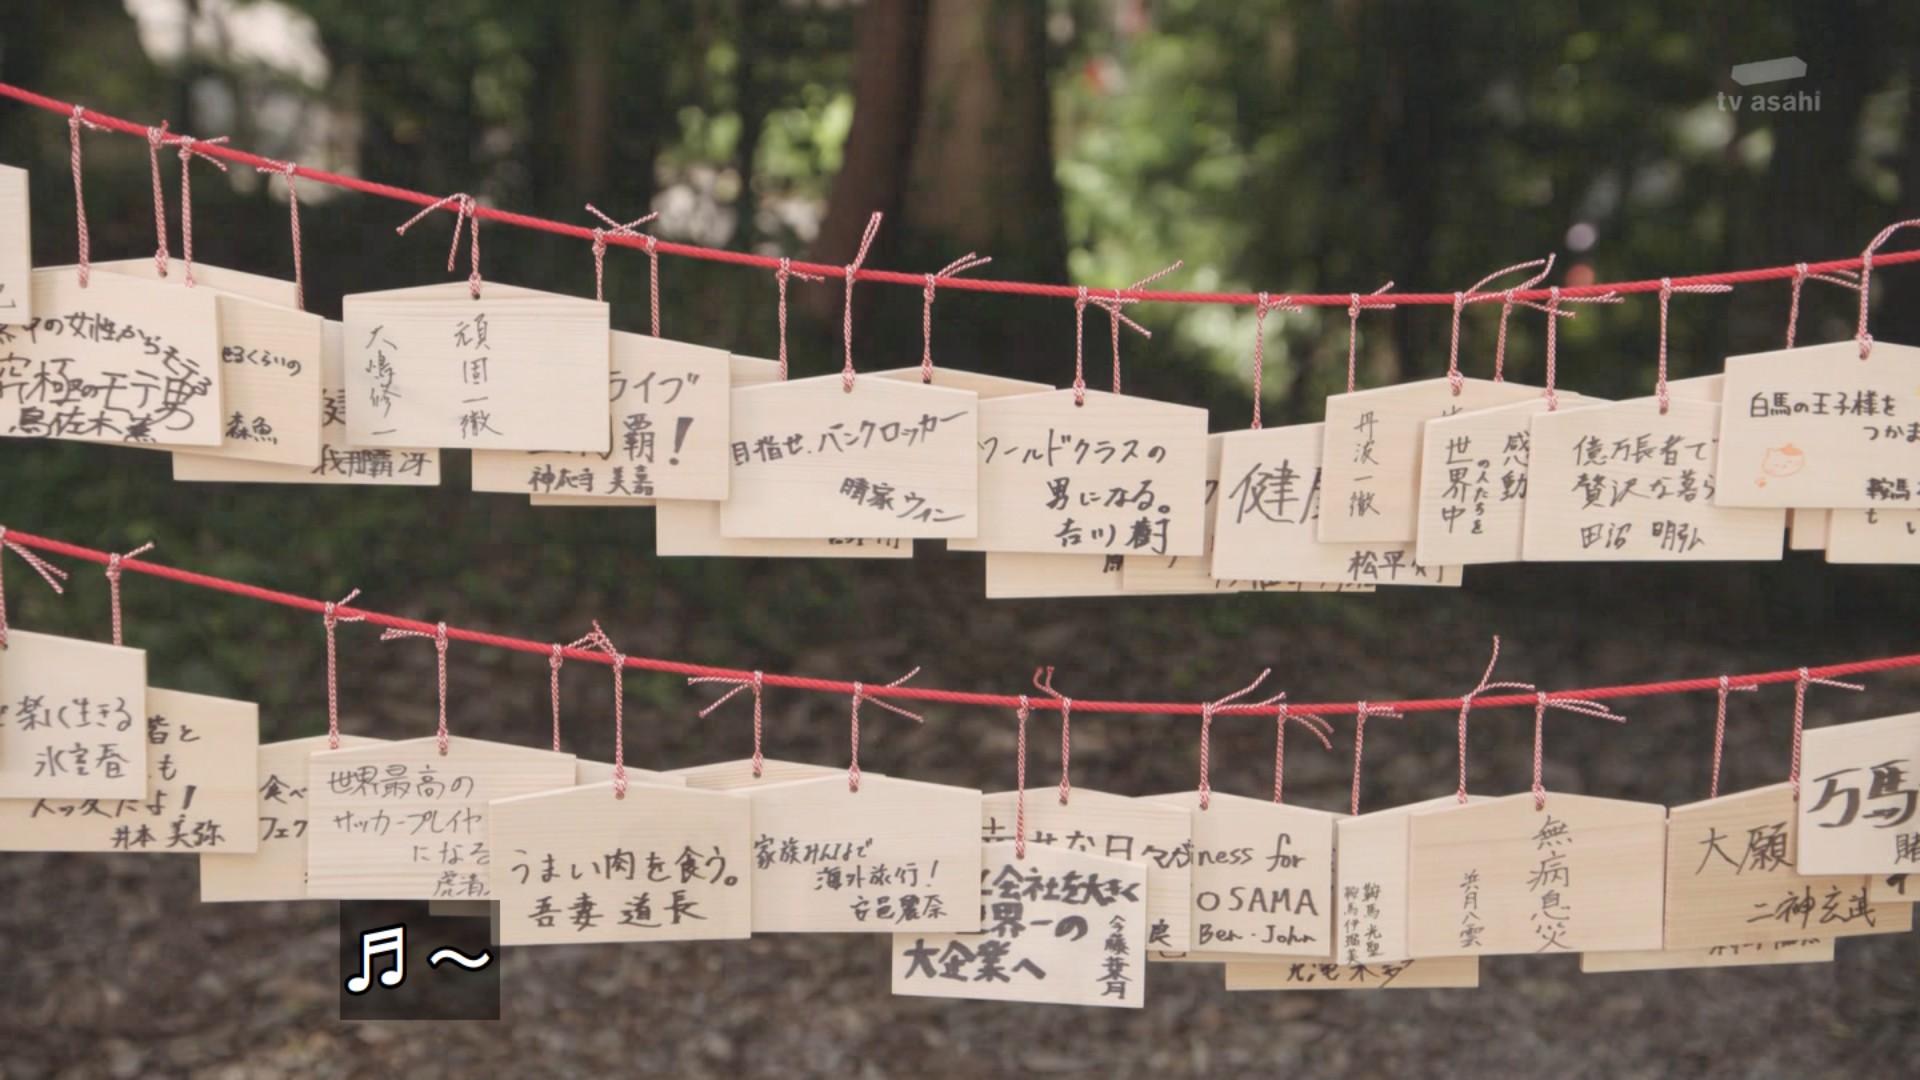 tv asahi
の女性からモテる
究極のモテ男
鳥佐木 薫
るくらいの
森魚
我那覇 冴
頑固一徹
大嶋修一
ライブ
覇！
神応寺 美嘉
目指せ、パンクロッカー
晴家 ウィン
ワールドクラスの
男になる。
吉川 樹
健
松平
丹波一徹
世界中
の人たちを
感動
億万長者で
贅沢な暮ら
田沼 明弘
白馬の王子様を
つかま
鞍馬
楽しく生きる
氷室春
皆と
も
だよ！
井本 美弥
食べ
フェク
世界最高の
サッカープレイヤ
になる
うまい肉を食う。
吾妻 道長
家族みんなで
海外旅行！
安邑麗奈
せな日々が
会社を大きく
世界一の
大企業へ
今藤葉月
ness for
OSAMA
Ben・John
鞍馬 光聖
鞍馬 伊瑠美
無病息災
浜月八雲
大願
二神玄武
万馬
賭
♬～